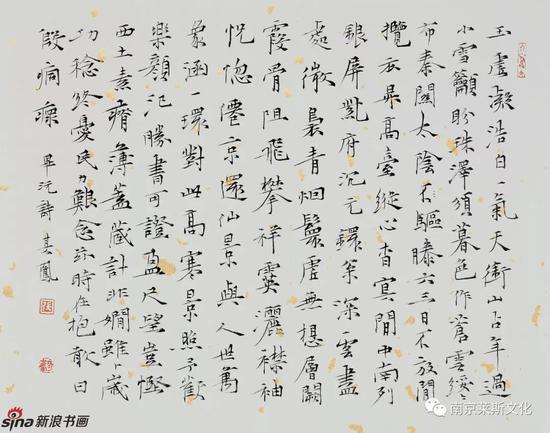 玉虛凝浩白一氣天衝山占年過
小雪籲盼珠澤須暮色作蒼雲綏〻
布秦關太陰不驅滕六三日不放閒
攬衣昇高臺縱心杳冥間中南列
銀屏紫府沉玉鐶岑深一雲盡
處微裊青烟鬟虛無想層闕
霞骨阻飛攀祥霙灑襟袖
恍惚京還仙景與人世萬
象涵一環對此高寒景照予歡
樂顏氾勝書可證盈尺望豈慳
西土素瘠薄蓋藏計非嫺雖卜歲
功稔終憂民力艱念茲時在抱敢曰
殷痌瘝 畢沅詩 鳳
sina 新浪书画
南京莱斯文化